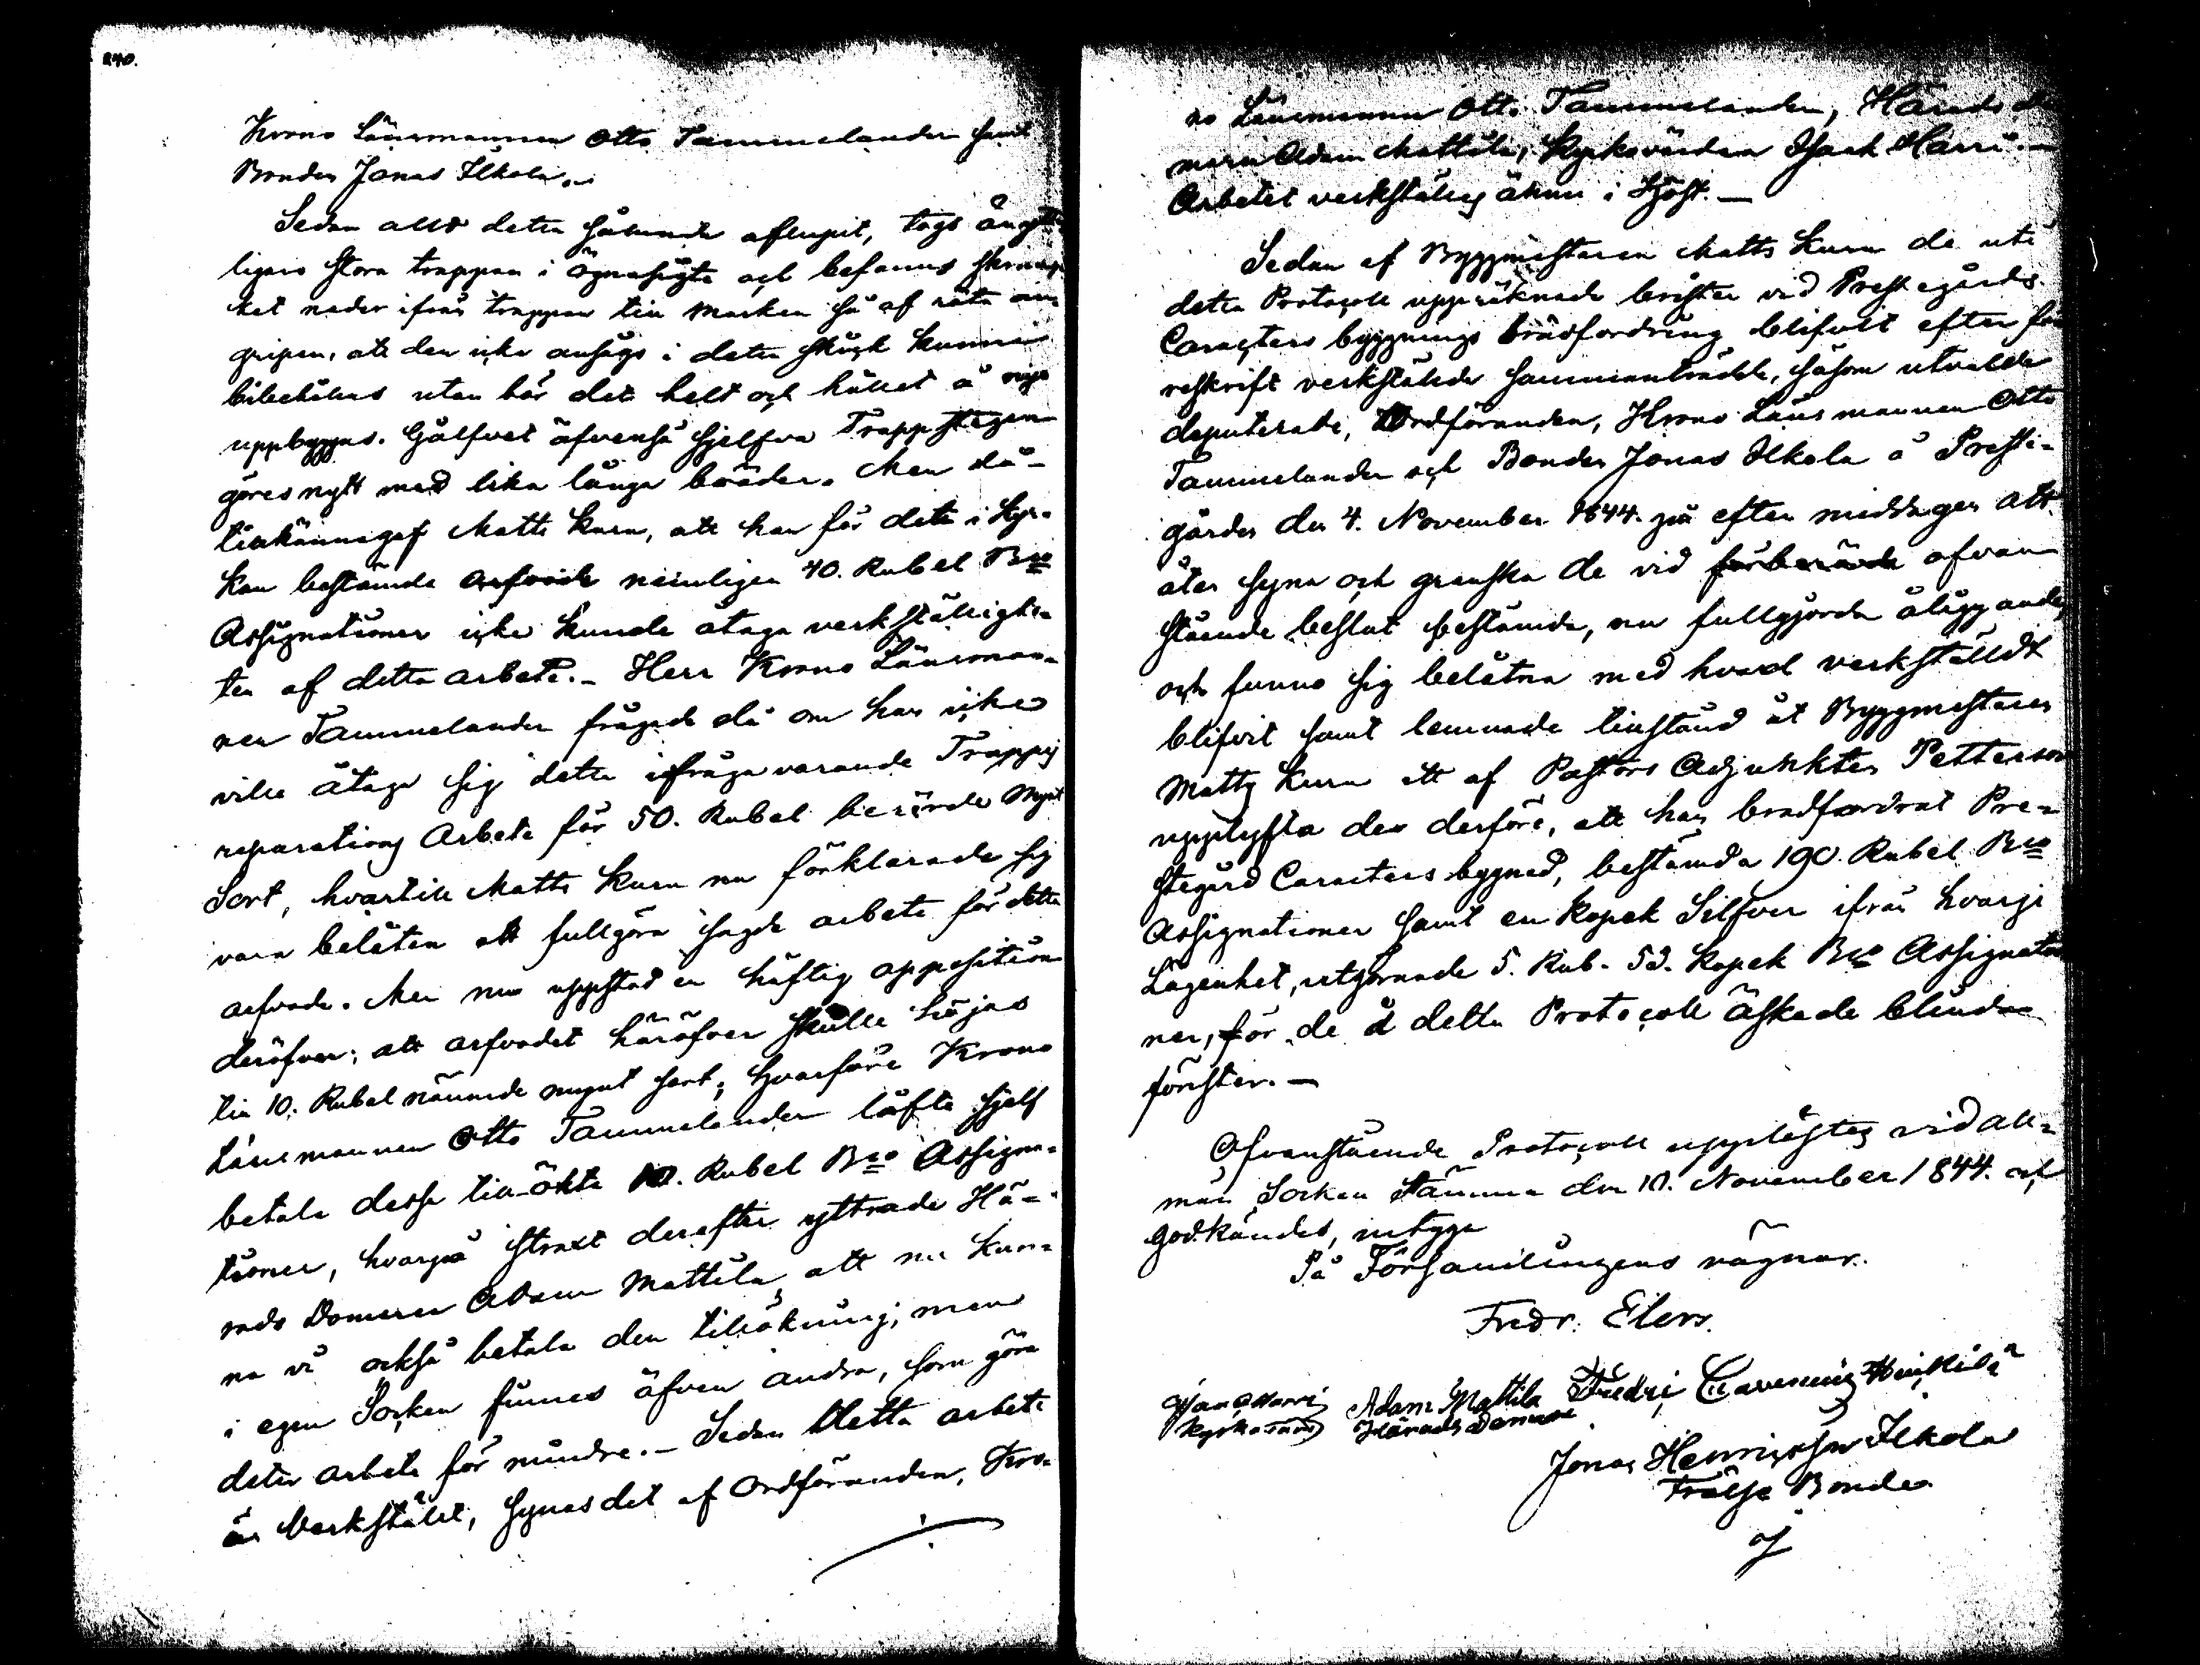 240.
Krono Länsmannen Otto Tammelander samt
Bonden Jonas Ilkola.
Sedan allt detta sålunda aflupit, togs
ligare stora trappan i ögnasigte och befanns
ket nedan ifrån trappan till marken så af röta an-
gripen, att den icke ansågs i detta skick kunna
bibehållas utan bör det helt och hållet å nyo
uppbyggas. Gålfvet äfvenså sjelfva Trappstegen
göres nytt med lika långa bräder. Men då
tillkännagaf Matts Kurn, att han för detta i Kyr-
kan bestämda arfvode nämligen 40. Rubel Bco
Assignationer icke kunde åtaga verkställighe-
ten af detta arbete. Herr Krono Länsman-
nen Tammelander frågade då om han icke
ville åtaga sig detta ifråga varande Trappas
reparations Arbete för 50. Rubel berörde Mynt
Sort, hvartill Matts Kurn nu förklarade sig
vara belåten att fullgöra sagde arbete för detta
arfvode. Men nu uppstod en häftig opposition
deröfver; att arfvodet häröfver skulle höjas
till 10. Rubel nämnde mynt sort; hvarföre Krono
Länsmannen Otto Tammelander låfte sjelf
betala dessa till-ökta 10. Rubel Bco Assigna-
tioner, hvarpå straxt derefter yttrade Hä-
rads Domaren Adam Mattila, att nu kun-
na vi också betala den tillökning; men
i egen Socken finnes äfven andra, som göra
detta arbete för mindre. Sedan detta arbete
är Verkstäldt, synas det af Ordföranden, Kro-
no Länsmannen Otto Tammelander, Härads do-
maren Adam Mattila, Kyrkovärden Isack Harri.
Arbetet verkställes ännu i Höst.
Sedan af Byggmästaren Matts Kurn de uti
detta Protocoll uppräknade brister vid Prestegårds
Caracters byggnings brädfordring blifvit efter fö-
reskrift verkstälde sammanträdde, såsom utvalde
deputerade, Ordföranden, Krono Länsmannen Otto
Tammelander och Bonden Jonas Ilkola å Preste-
gården den 4. November 1844. på efter middagen att
åter syna och granska de vid förberörde ofvan
stående beslut bestämda, nu fullgjorda åligganden,
och funno sig belåtna med hvad verkställdt
blifvit samt lemnade tillstånd åt Byggmästaren
Matts Kurn att af Pastors Adjunkten Petterson
upplyfta den derföre, att han brädfordrat Pre-
stegård Caracters bygnad, bestämda 190. Rubel Bco
Assignationer samt en Kopek Silfver ifrån hvarje
Lägenhet, utgörande 5. Rub. 53. Kopek Bco Assignatio
ner, för de å detta Protocoll äskade blinda
fönster.
Ofvanstående Protocoll upplästes vid All-
män Socken stämma den 10. November 1844. och
godkändes, intyga
På Församlingens vägnar.
Fredr. Elers.
Isac Harri Adam Mattila Fredric
Kyrkovärd Härads Domare
Jonas Henricsson Ilkola
Frälse Bonde